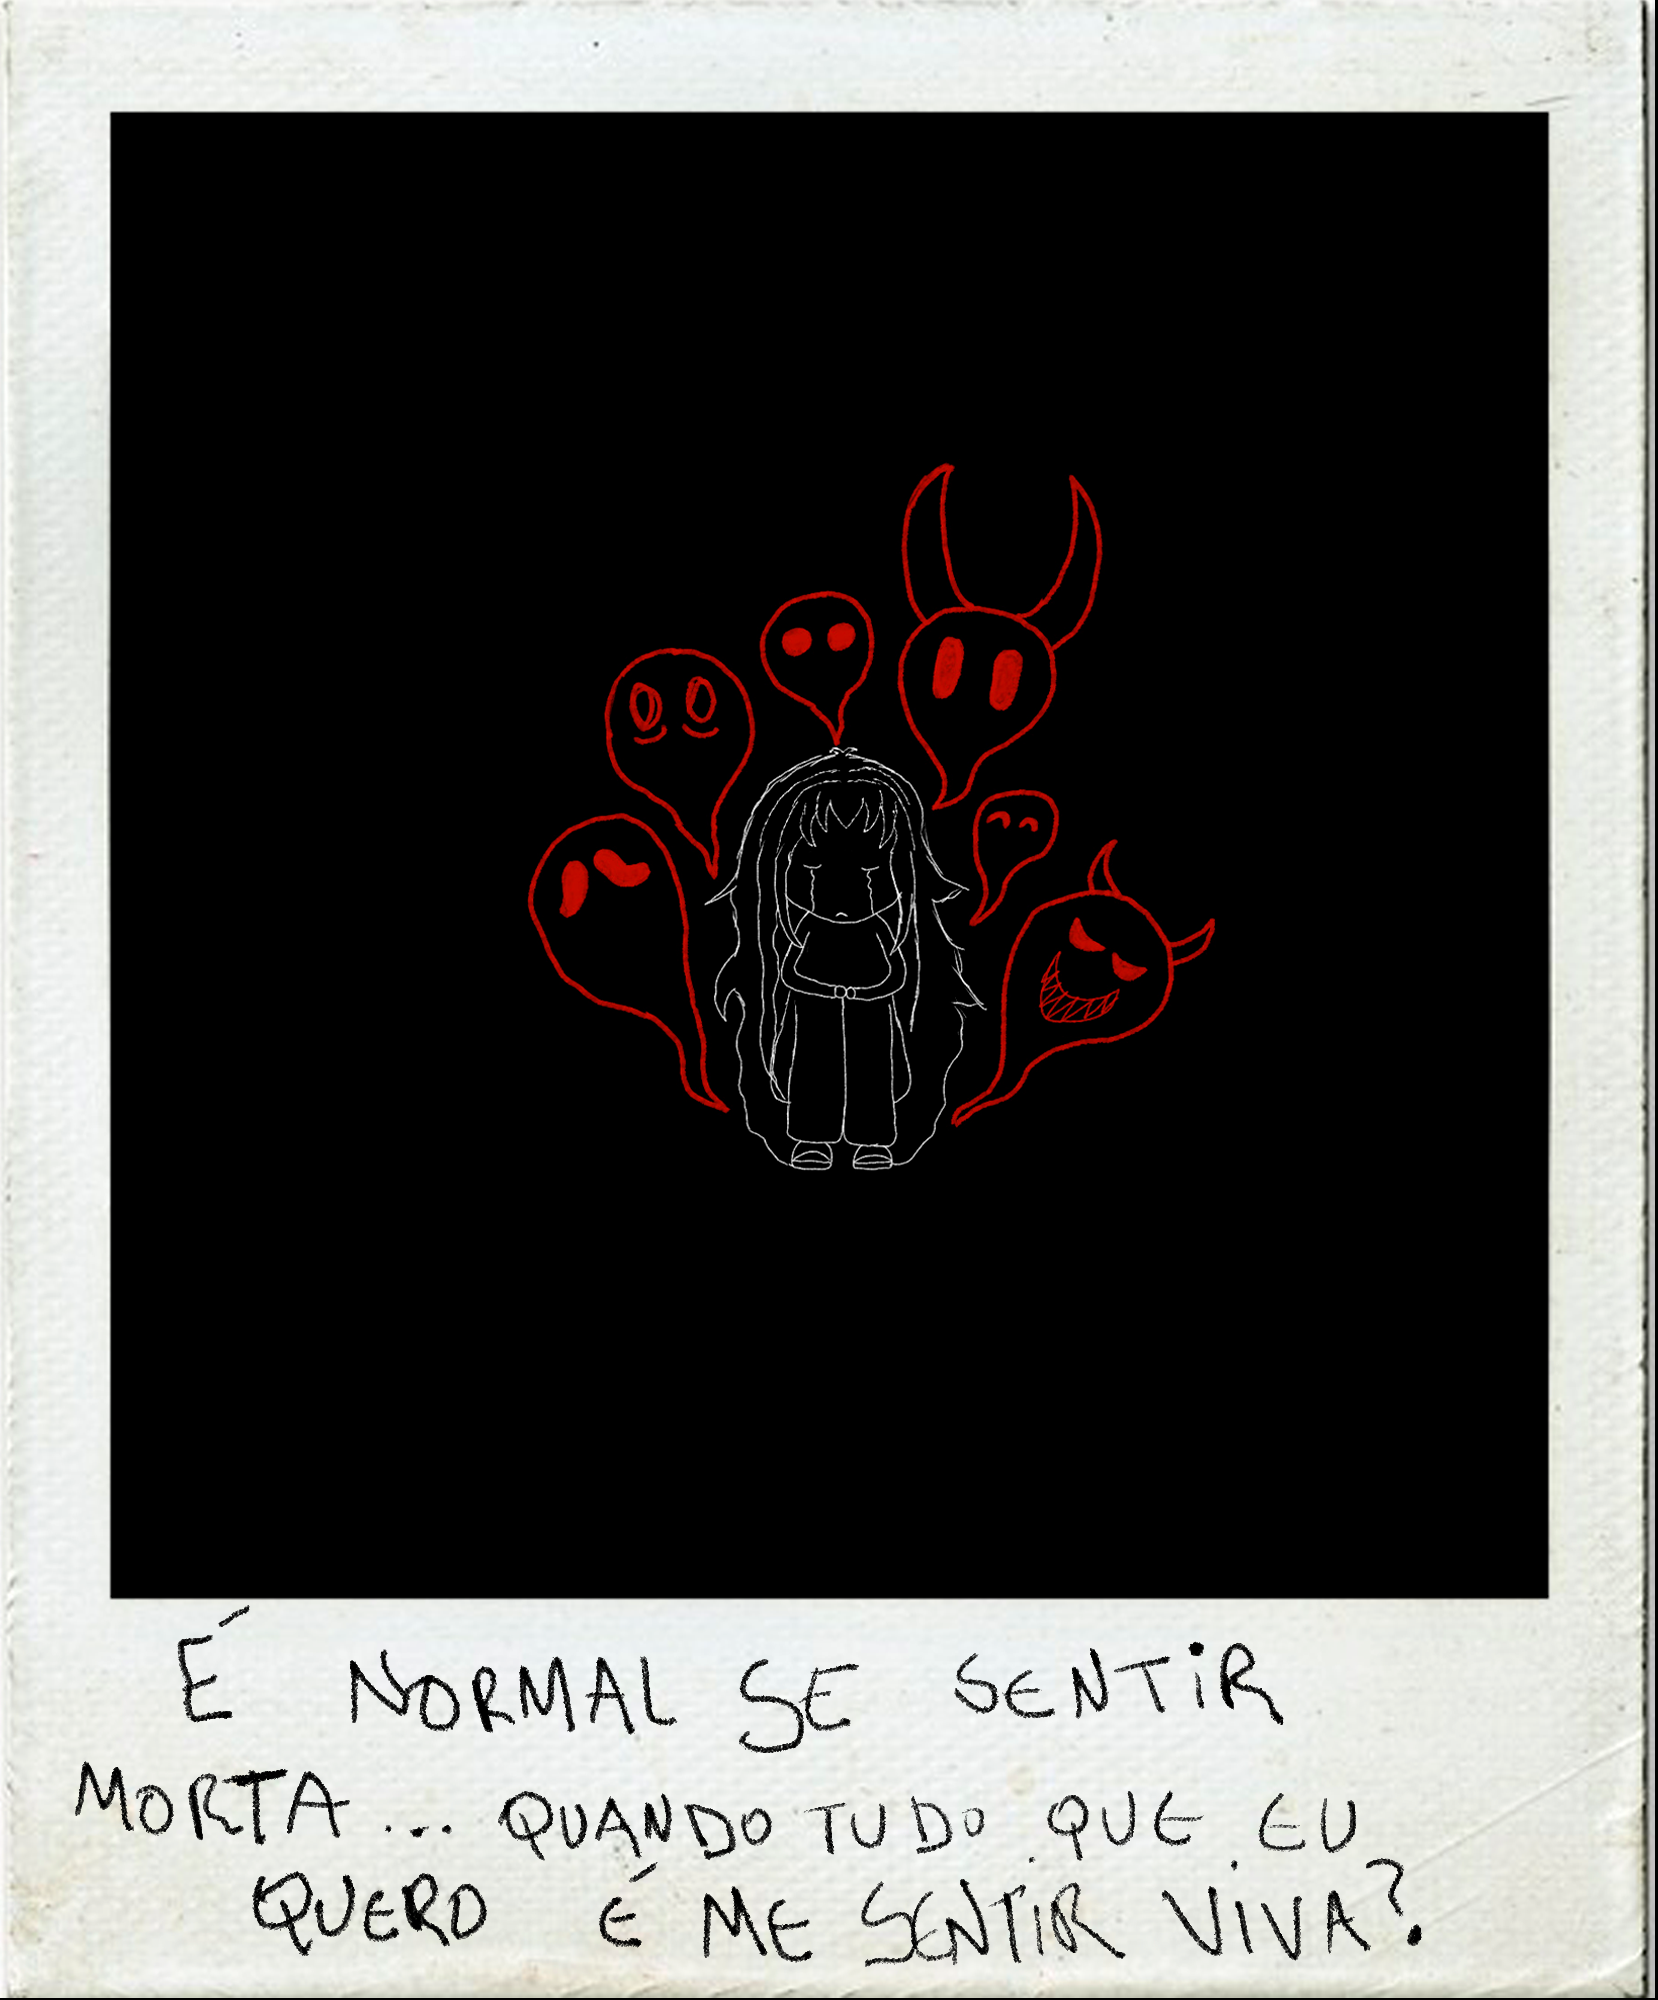 É NORMAL SE SENTIR
MORTA... QUANDO TUDO QUE EU
QUERO É ME SENTIR VIVA?